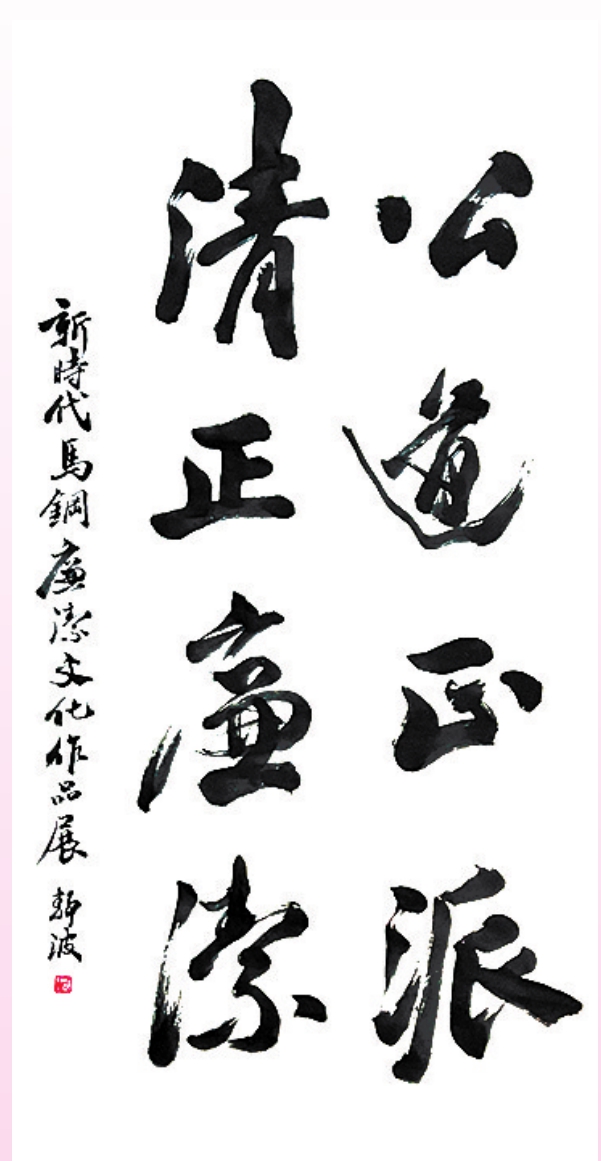 公道正派
清正廉潔
新時代馬鋼廉潔文化作品展 靜波